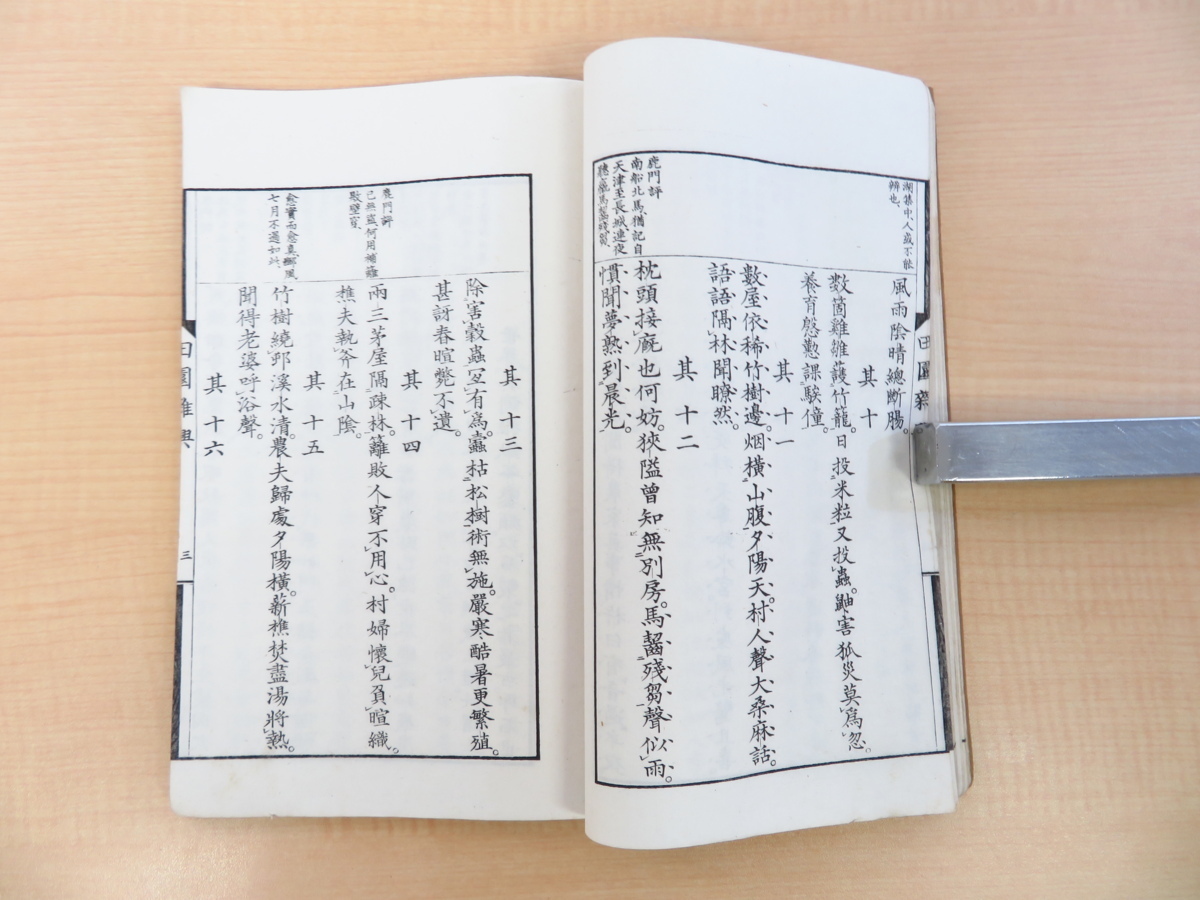 湖集中、人或不能
辨也、
風雨陰晴總斷腸。
其十
數箇雞雛護竹籠。日投米粒又投蟲。鼬害狐災莫爲忽。
養育慇懃課騃僮。
其十一
數屋依稀竹樹邊。烟橫山腹夕陽天。村人聲大桑麻話。
語語隔林聞瞭然。
其十二
鹿門評
南船北馬、猶記自
天津至長城連夜
枕頭接廐也何妨。狹隘曾知無別房。馬齧殘芻聲似雨。
慣聞夢熟到晨光。
其十三
除害穀蟲固有爲。蠹枯松樹術無施。嚴寒酷暑更繁殖。
甚訝春暄斃不遺。
其十四
鹿門評
已無盜何用補籬
兩三茅屋隔疎林。籬敗人穿不用心。村婦懷兒負暄織。
樵夫執斧在山陰。
其十五
七月不過如此、
竹樹繞邨溪水清。農夫歸處夕陽橫。薪樵焚盡湯將熱。
聞得老婆呼浴聲。
其十六
田園雜興
三